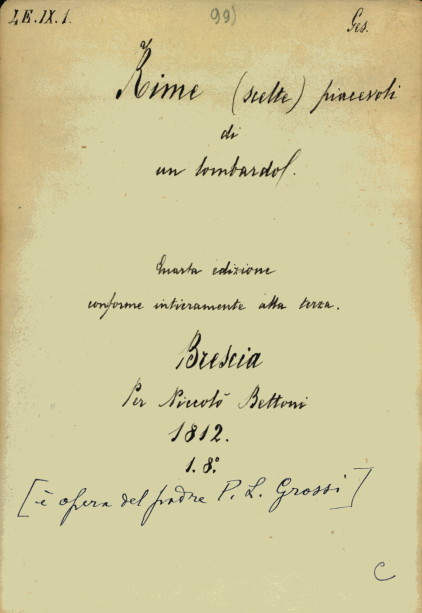 I.E.IX.1. 99) Ges.
Rime (scelte) piacevoli
di
un lombardo.
Quarta edizione
conforme intieramente alla terza.
Brescia
Per Niccolò Bettoni
1812.
1. 8.º
[è opera del padre P. L. Grossi]
C